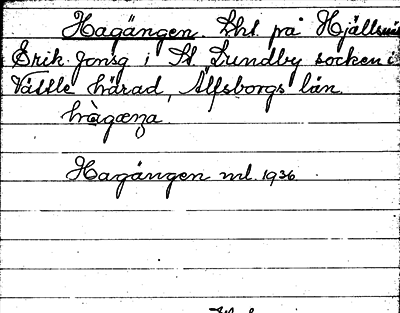 Hagängen. Lht. på Hjällsnäs
Erik Jonsg i St. Lundby socken i
Vättle härad, Älfsborgs län.
hàgæŋa
Hagängen ml. 1936.